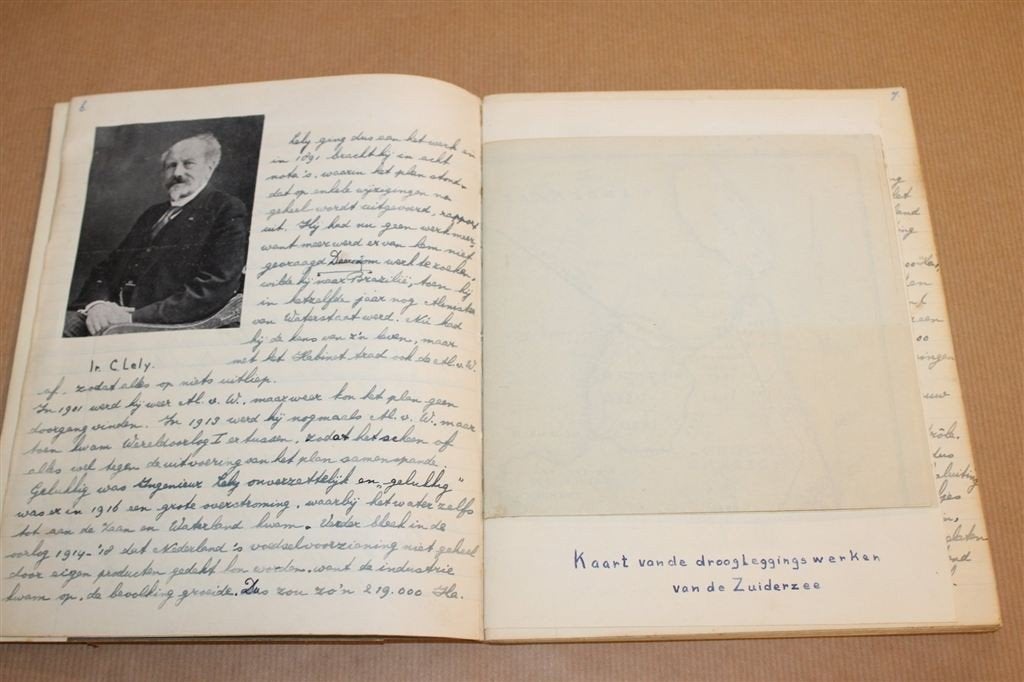 6.
Lely ging dus aan het werk en
in 1891 bracht hij in acht
nota's, waarin het plan stond,
dat op enkele wijzigingen na
geheel wordt uitgevoerd, rapport
uit. Hij had nu geen werk meer,
want meer werd er van hem niet
gevraagd. Daarom werk te zoeken
wilde hij naar Brazilië, toen hij
in hetzelfde jaar nog Minister
van Waterstaat werd. Nu had
hij de kans van z'n leven, maar
met het Kabinet trad ook de M. v. W.
Ir. C. Lely.
af, zodat alles op niets uitliep.
In 1901 werd hij weer M. v. W., maar weer kon het plan geen
doorgang vinden. In 1913 werd hij nogmaals M. v. W., maar
toen kwam Wereldoorlog I ertussen, zodat het scheen of
alles wel tegen de uitvoering van het plan samenspande.
Gelukkig was Ingenieur Lely onverzettelijk en „gelukkig"
was er in 1916 een grote overstroming, waarbij het water zelfs
tot aan de Zaan en Waterland kwam. Verder bleek in de
oorlog 1914-'18 dat Nederland's voedselvoorziening niet geheel
door eigen producten gedekt kon worden, want de industrie
kwam op, de bevolking groeide. Dus zou zo'n 219.000 Ha.
7.
Kaart van de droogleggingswerken
van de Zuiderzee